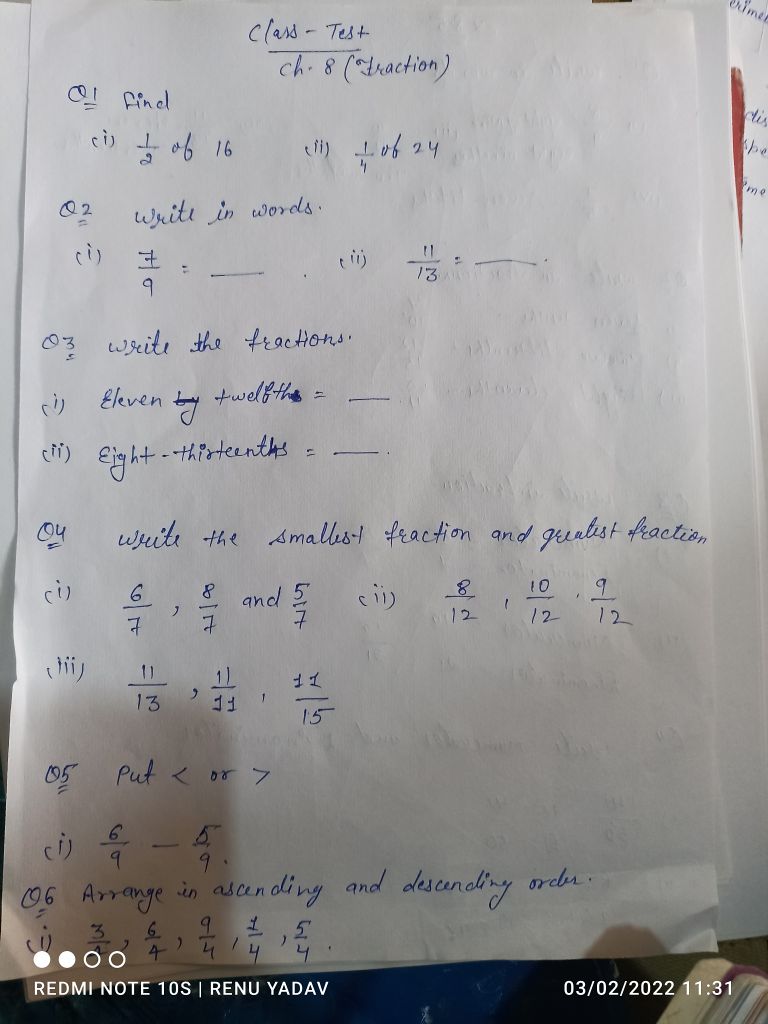 Class - Test
Ch. 8 (Fraction)
Q1 Find
(i) 1/2 of 16 (ii) 1/4 of 24
Q2 Write in words.
(i) 7/9 = ___ . (ii) 11/13 = ___ .
Q3 Write the fractions.
(i) Eleven twelfths = ___
(ii) Eight-thirteenths = ___ .
Q4 Write the smallest fraction and greatest fraction
(i) 6/7 , 8/7 and 5/7 (ii) 8/12 , 10/12 . 9/12
(iii) 11/13 , 11/11 , 11/15
Q5 Put < or >
(i) 6/9 — 5/9 .
Q6 Arrange in ascending and descending order.
(i) 3/4 , 6/4 , 9/4 , 1/4 , 5/4 .
REDMI NOTE 10S | RENU YADAV 03/02/2022 11:31